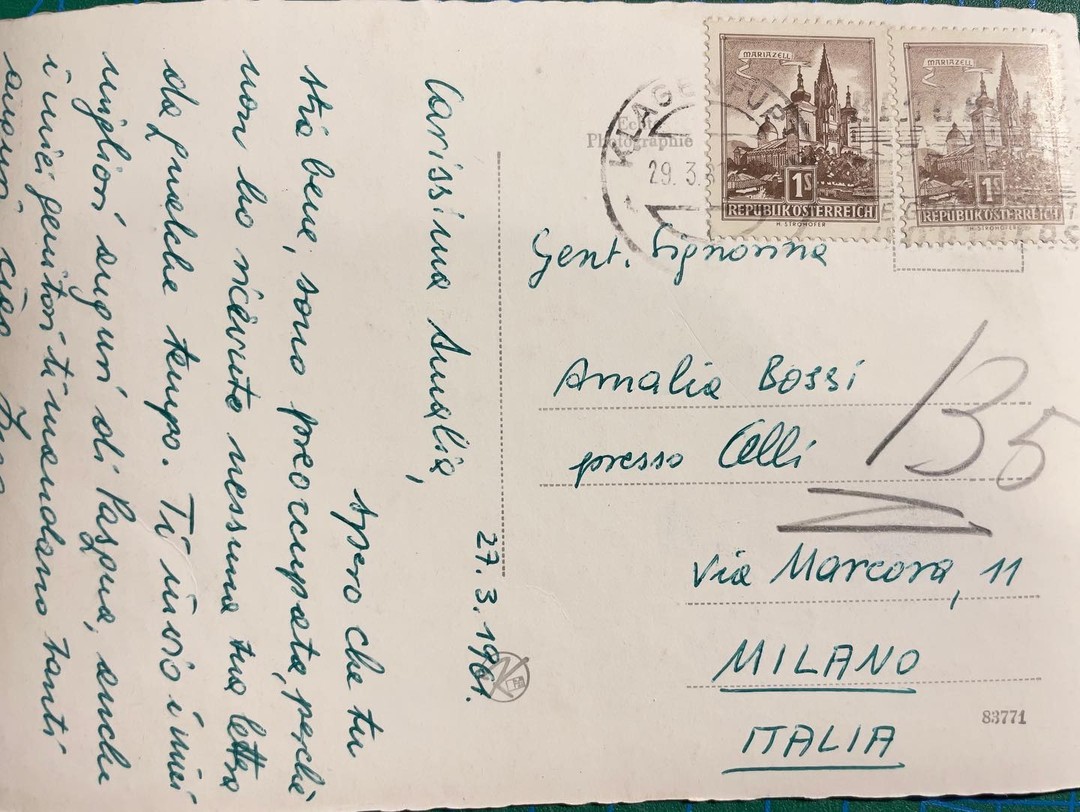 27. 3. 1961.
Carissima Amalia,
spero che tu
stia bene, sono preoccupata, perchè
non ho ricevuto nessuna tua lettera
da qualche tempo. Ti invio i miei
migliori auguri di Pasqua, anche
i miei genitori ti mandano tanti
auguri, ciao
Echte
Photographie
KLAGENFURT
29. 3.
MARIAZELL
1S
REPUBLIK ÖSTERREICH
H. STROHOFER
MARIAZELL
1S
REPUBLIK ÖSTERREICH
H. STROHOFER
Gent. Signorina
Amalia Bossi
presso Celli
Via Marcora, 11
MILANO
ITALIA
B5
83771